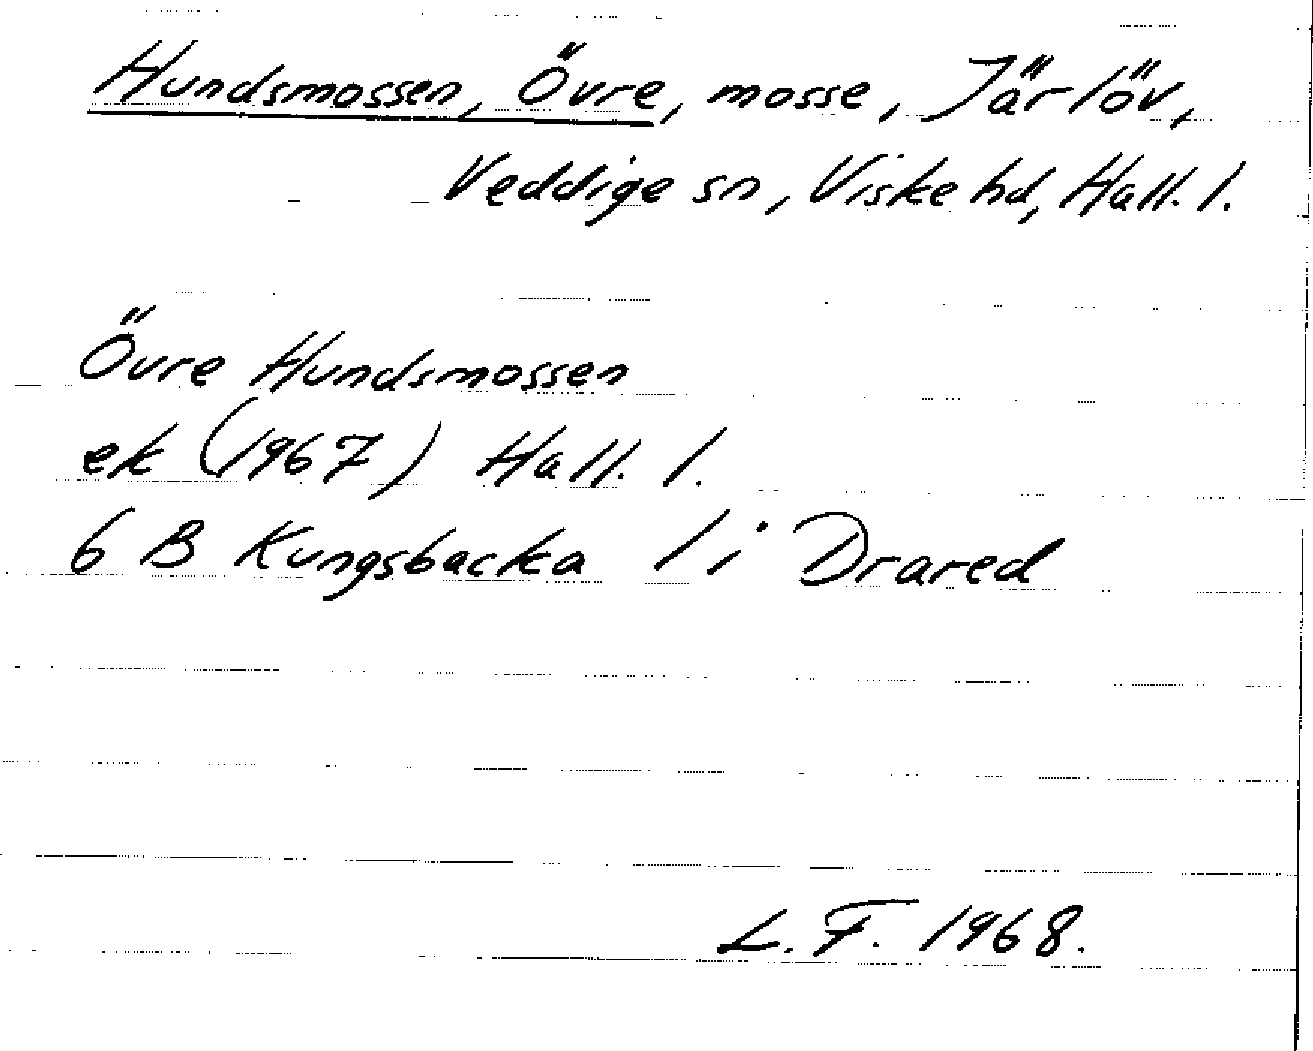 Hundsmossen, Övre, mosse, Järlöv,
Veddige sn, Viske hd, Hall. l.
Övre Hundsmossen
ek (1967) Hall. l.
6 B Kungsbacka 1 i Drared
L. F. 1968.